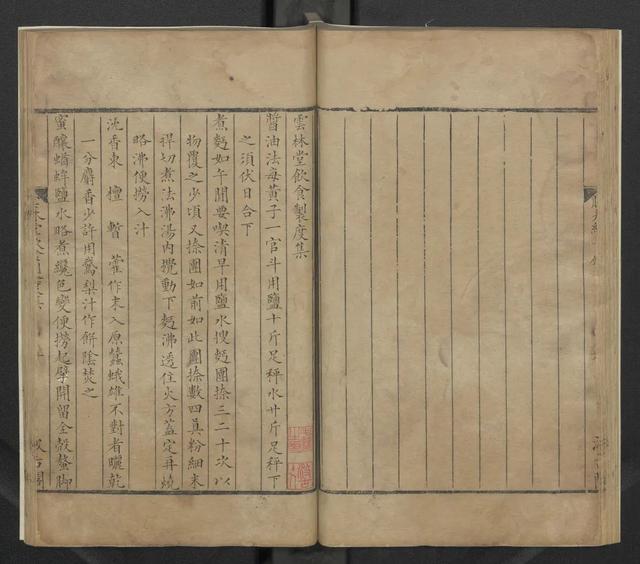 雲林堂飲食製度集
醬油法每黃子一官斗用鹽十斤足秤水廿斤足秤下
之須伏日合下
煮麪如午間要喫清早用鹽水搜麪團捺三二十次以
物覆之少頃又捺團如前如此團捺數四真粉細末
捍切煮法沸湯內攪動下麪沸透住火方蓋定再燒
略沸便撈入汁
沈香束 檀 暫 藿作末入原蠶蛾雄不對者曬乾
一分麝香少許用鵞梨汁作餅陰焚之
蜜釀蝤蛑鹽水略煮纔色變便撈起擘開留全殼螯脚